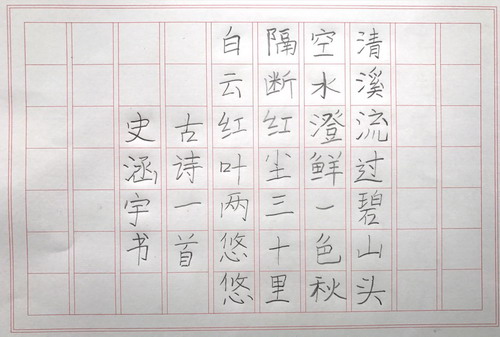 清溪流过碧山头
空水澄鲜一色秋
隔断红尘三十里
白云红叶两悠悠
古诗一首
史涵宇书